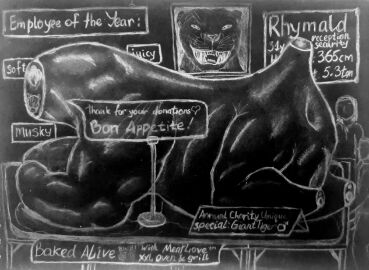 Employee of the Year:
Rhymald
reception
security
365cm
5.3ton
juicy
Soft
Musky
Thank for your donations♡
Bon Appetite!
Annual Charity Unique
special: Giant Tiger ♂
Baked Alive
with MeatLove™
XXL oven & grill